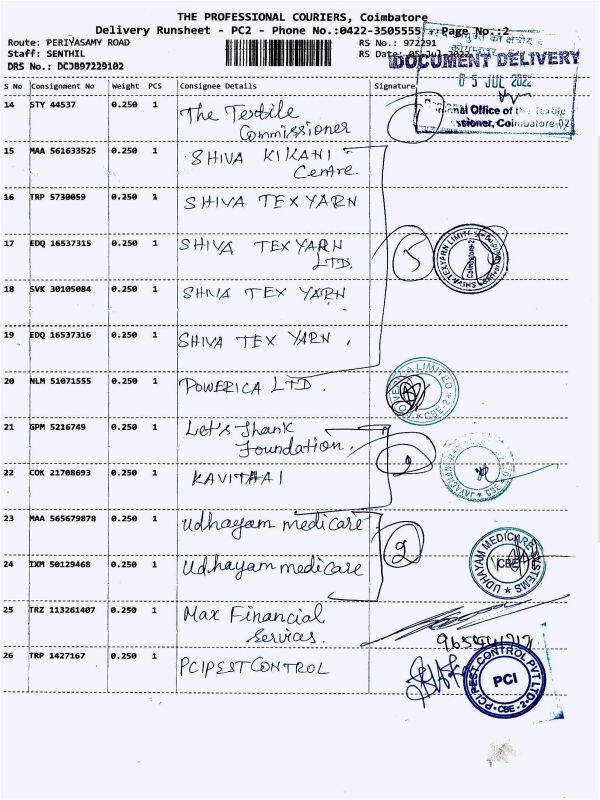 THE PROFESSIONAL COURIERS, Coimbatore
Delivery Runsheet - PC2 - Phone No.:0422-3505555 Page No.:2
Route: PERIYASAMY ROAD RS No.: 972291
Staff: SENTHIL RS Date: 05-Jul-2022
DRS No.: DCJB97229102
DOCUMENT DELIVERY
05 JUL 2022
Regional Office of the Textile
Commissioner, Coimbatore-02
S No Consignment No Weight PCS Consignee Details Signature
14 STY 44537 0.250 1 The Textile
Commissioner
1
15 MAA 561633525 0.250 1 SHIVA KIKANI
Centre
16 TRP 5730059 0.250 1 SHIVA TEX YARN
17 EDQ 16537315 0.250 1 SHIVA TEX YARN
LTD.
5
SHIVA TEXYARN LIMITED
Coimbatore-2
18 SVK 30105084 0.250 1 SHIVA TEX YARN
19 EDQ 16537316 0.250 1 SHIVA TEX YARN.
20 NLM 51071555 0.250 1 POWERICA LTD.
LIMITED
CBE-2
21 GPM 5216749 0.250 1 Let's Thank
Foundation.
22 COK 21708693 0.250 1 KAVITHAI
23 MAA 565679878 0.250 1 Udhayam medicare
2
24 IXM 50129468 0.250 1 Udhayam medicare
UDHAYAM MEDICARE SYSTEMS
CBE
25 TRZ 113261407 0.250 1 Max Financial
Services.
26 TRP 1427167 0.250 1 PCIPEST CONTROL
PCI PEST CONTROL PVT LTD
PCI
CBE-2